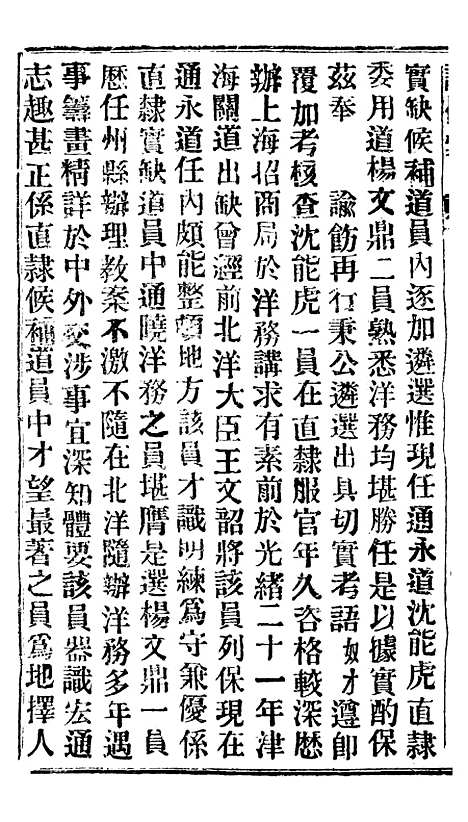 實缺候補道員內逐加遴選惟現任通永道沈能虎直隸
委用道楊文鼎二員熟悉洋務均堪勝任是以據實酌保
茲奉　　諭飭再行秉公遴選出具切實考語奴才遵即
覆加考核查沈能虎一員在直隸服官年久資格較深歷
辦上海招商局於洋務講求有素前於光緒二十一年津
海關道出缺曾經前北洋大臣王文韶將該員列保現在
通永道任內頗能整頓地方該員才識明練爲守兼優係
直隸實缺道員中通曉洋務之員堪膺是選楊文鼎一員
歷任州縣辦理教案不激不隨在北洋隨辦洋務多年遇
事籌畫精詳於中外交涉事宜深知體要該員器識宏通
志趣甚正係直隸候補道員中才望最著之員爲地擇人